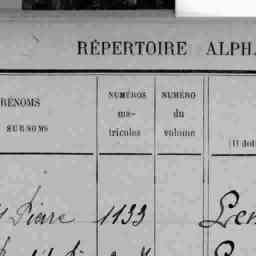 RÉPERTOIRE ALPH
RÉNOMS
SURNOMS
NUMÉROS
ma-
tricules
NUMÉRO
du
volume
(Il doit
Pierre 1133